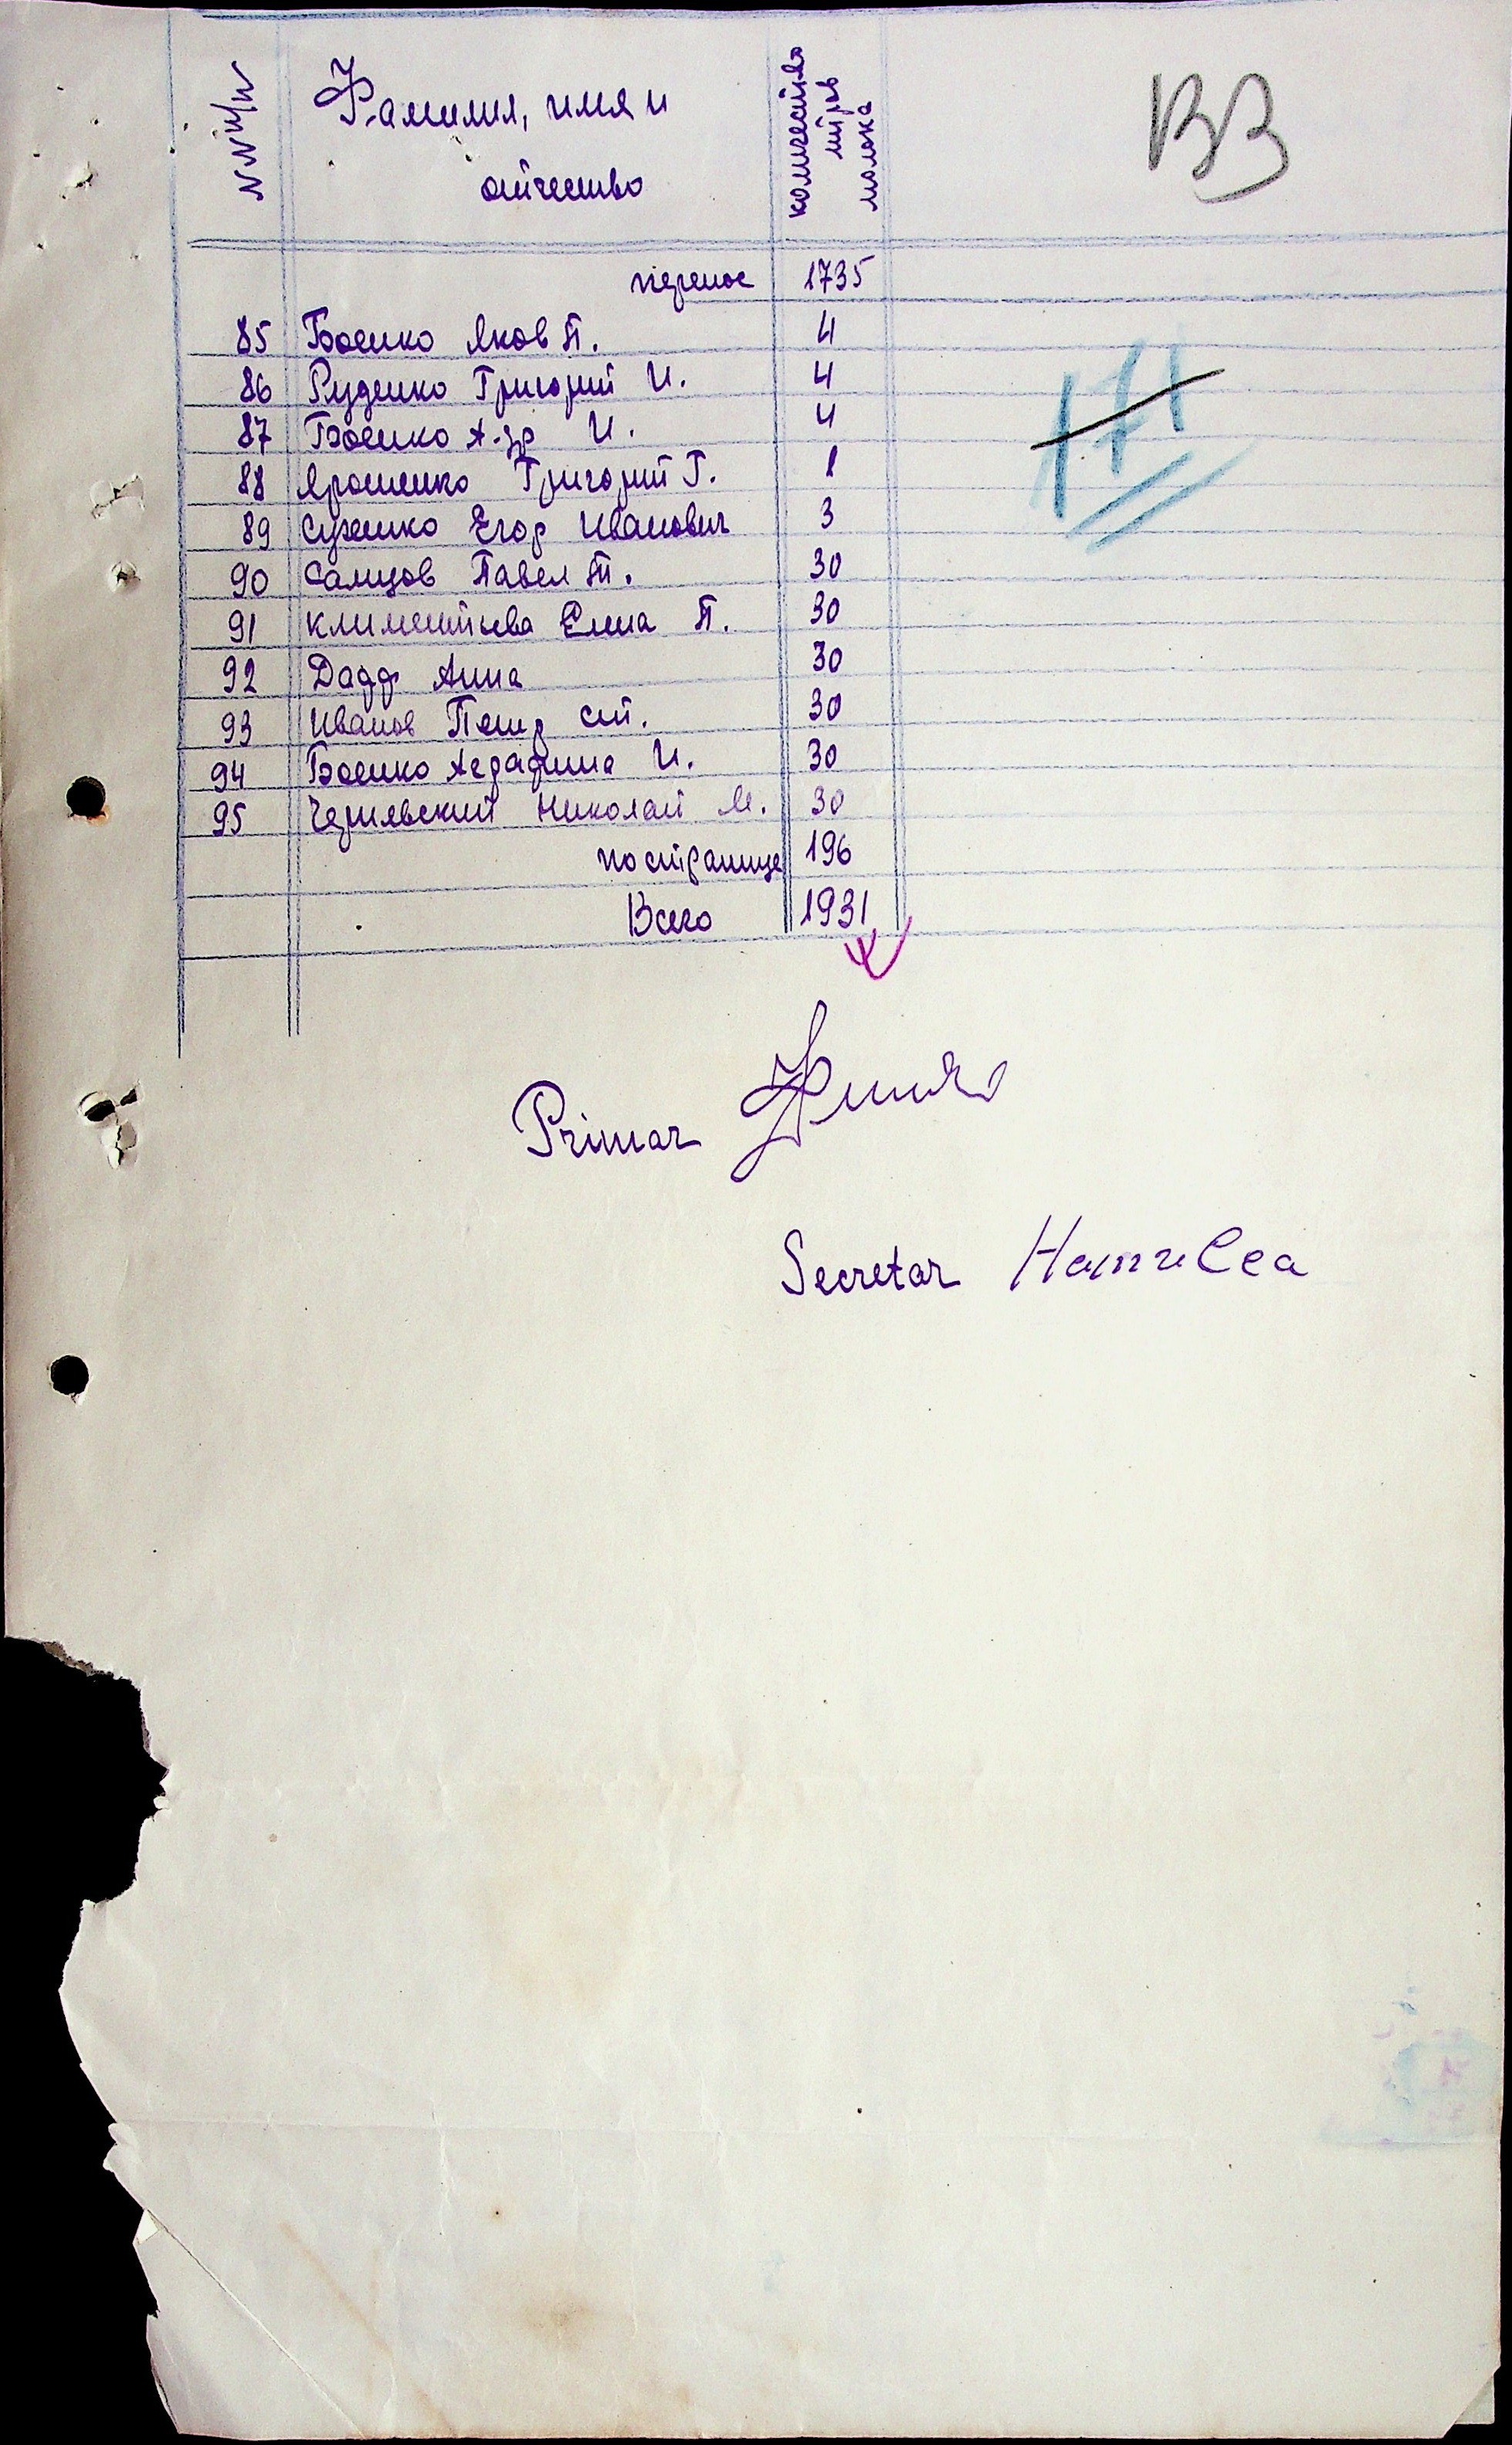 NN п/п Фамилия, имя и отчество количество литров молока
ВВ
перенос 1735
85 Боенко Яков П. 4
86 Руденко Григорий И. 4
87 Боенко А-др И. 4
88 Ярошенко Григорий Г. 1
89 Сухенко Егор Иванович 3
90 Самцов Павел П. 30
91 Климентьева Елена П. 30
92 Дадд Анна 30
93 Иванов Петр Ст. 30
94 Боенко И. 30
95 Чернявский Николай М. 30
по странице 196
Всего 1931
Primar
Secretar